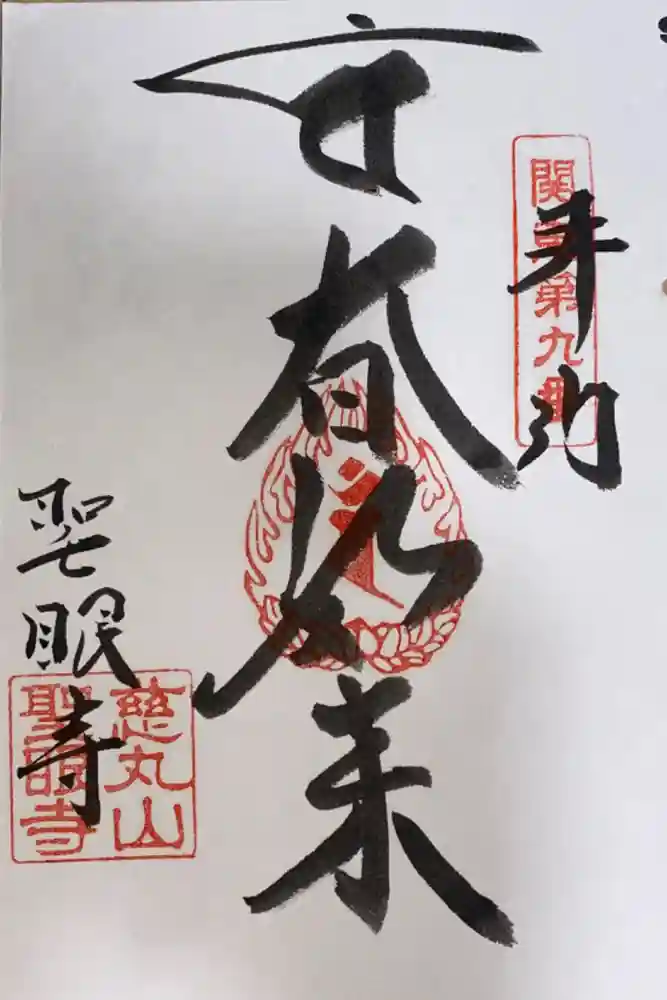 奉拝
関東第九番
大日如来
聖眼寺
慈丸山
聖眼寺